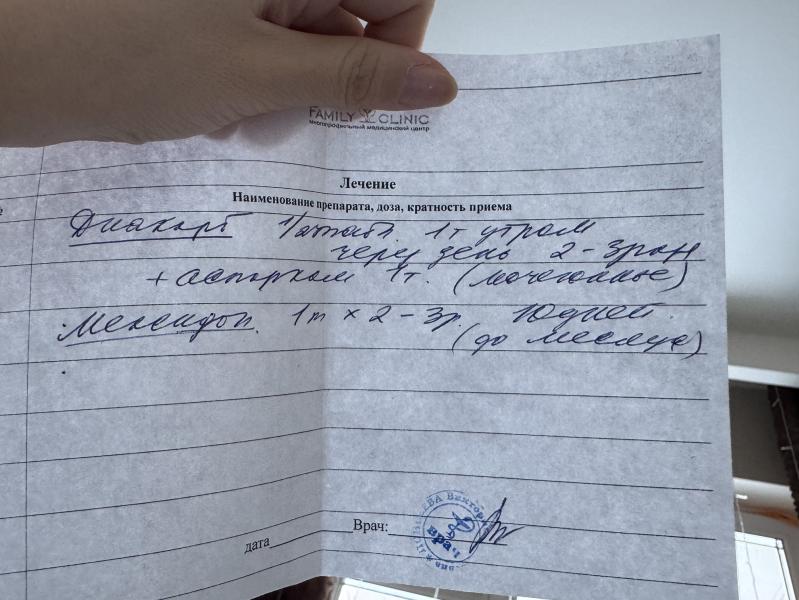 FAMILY CLINIC
многопрофильный медицинский центр
Лечение
Наименование препарата, доза, кратность приема
Диакарб 1т утром
через день 2-3 раза
+ аспаркам 1т. (мочегонные)
Мексидол 1т × 2-3р. 10 дней
(до месяца)
Врач:
дата
врач